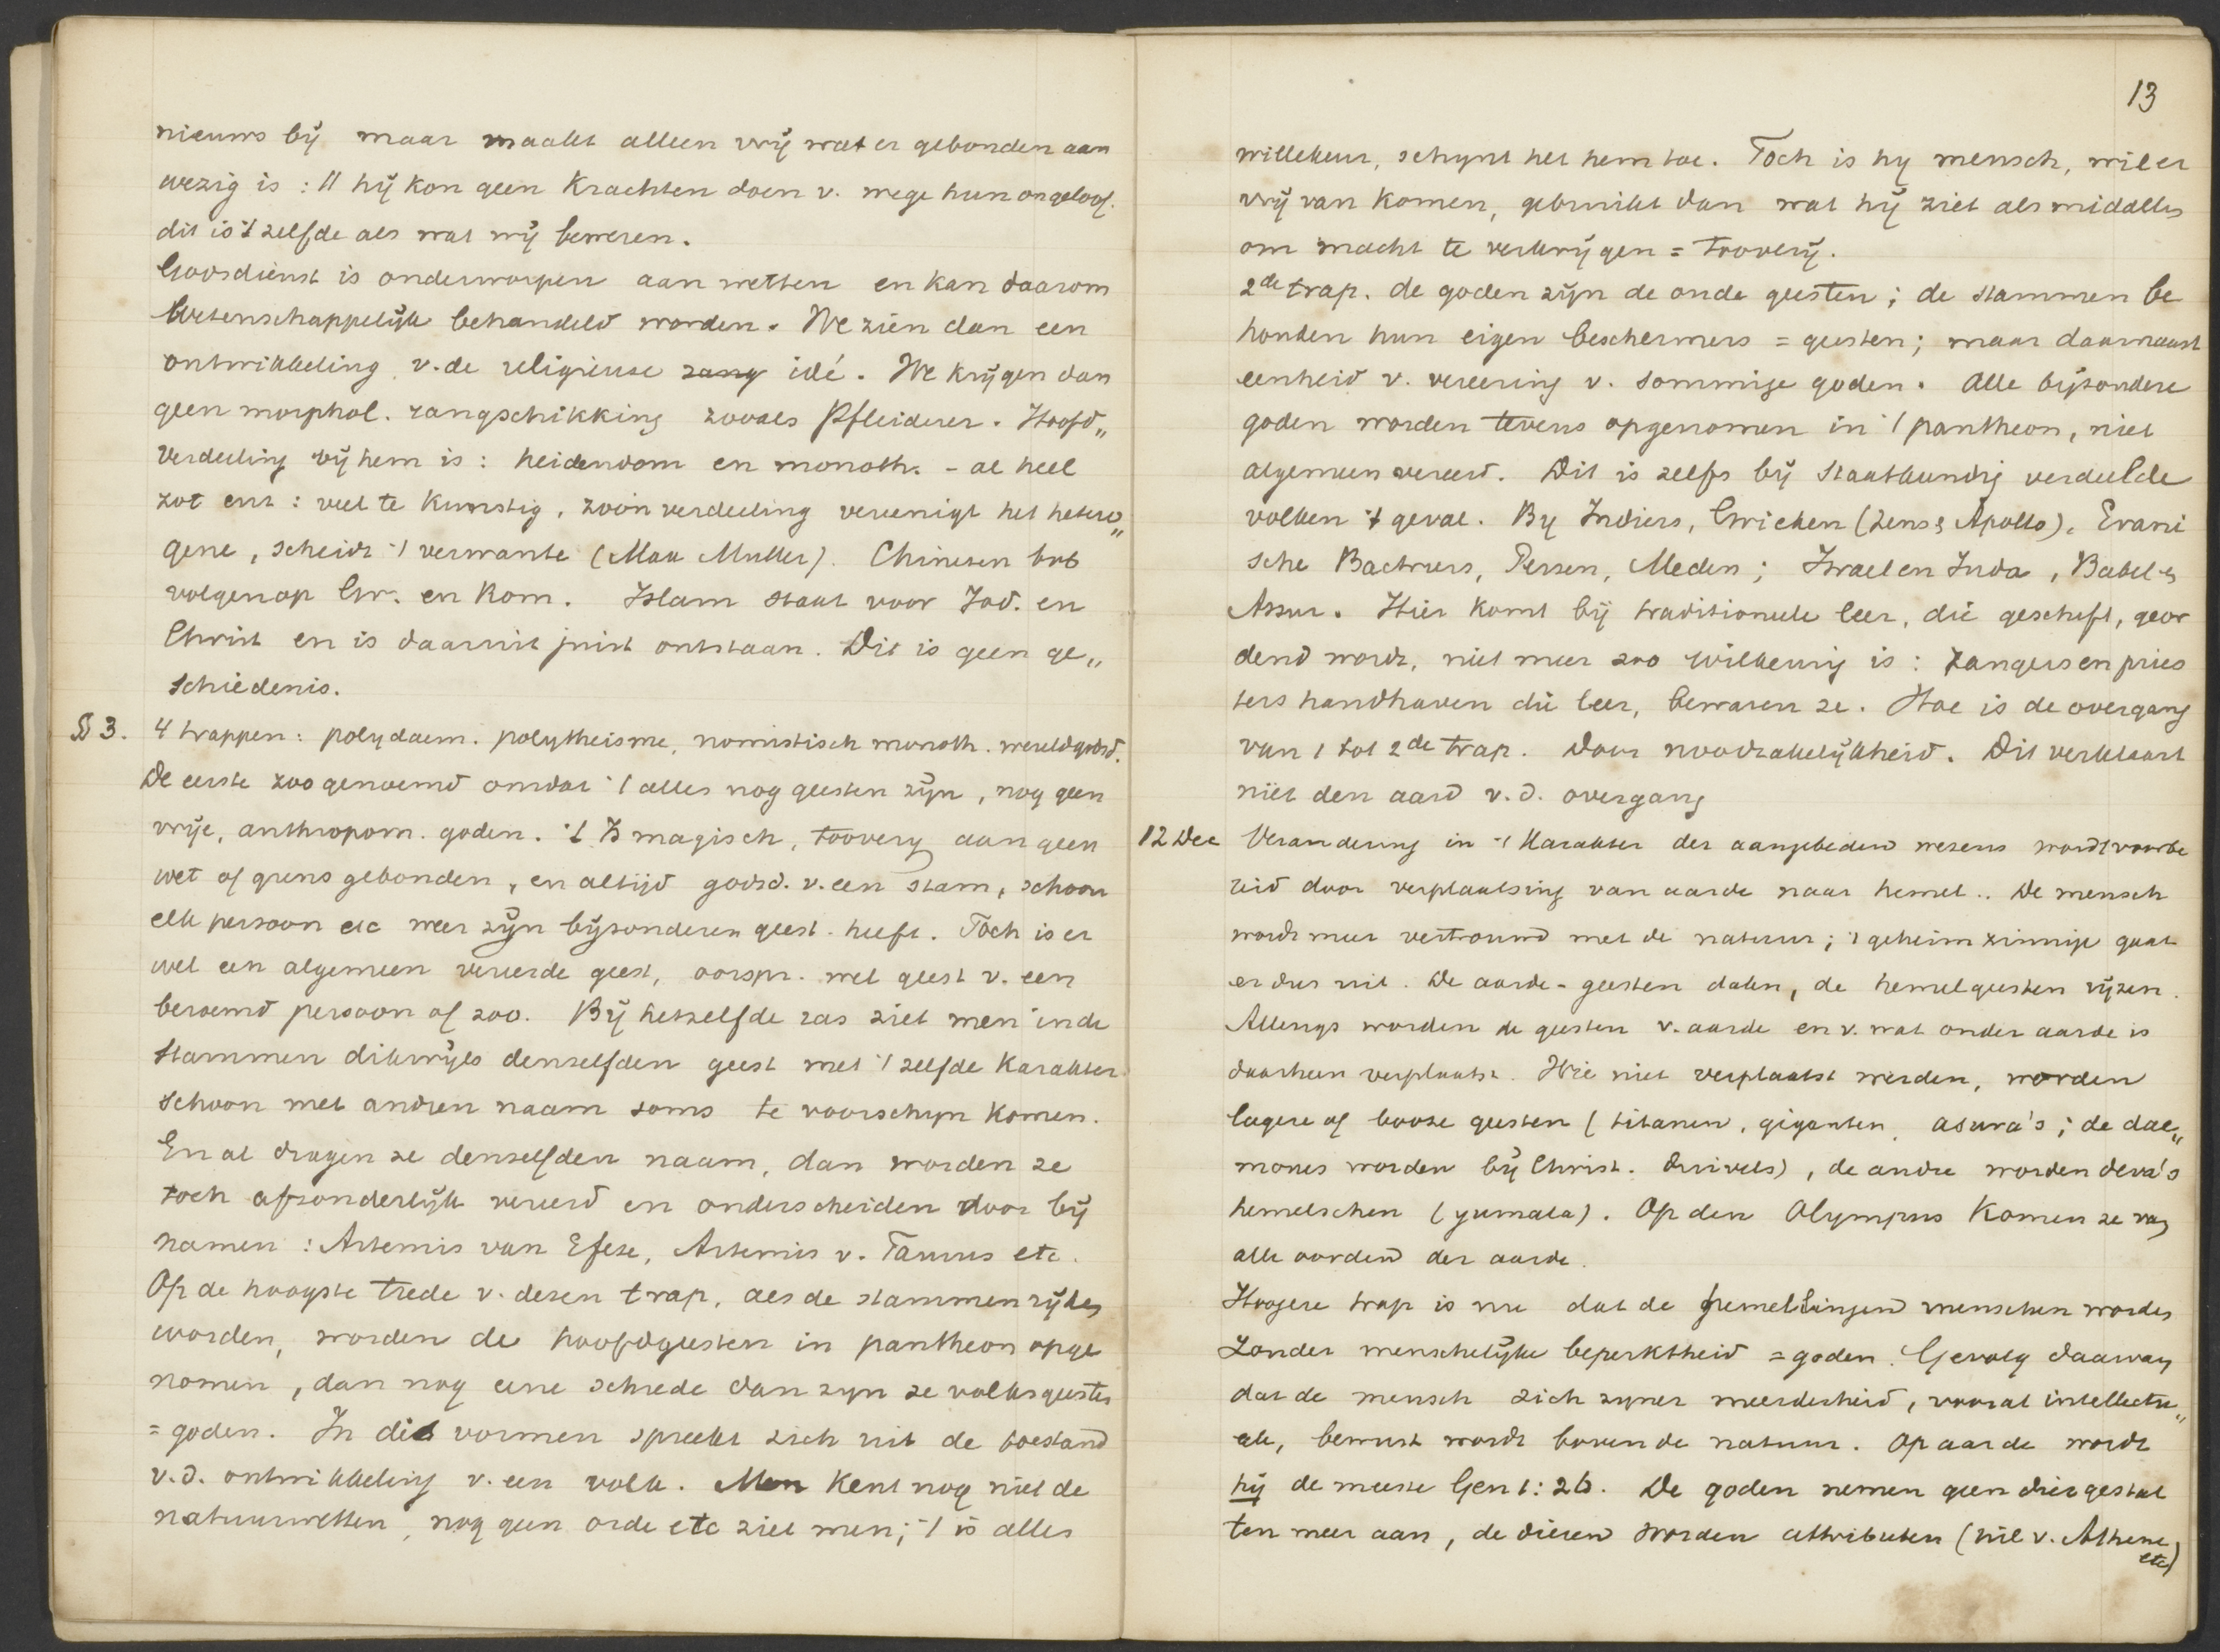 nieuws bij maar maakt alleen vrij wat er gebonden aan
wezig is: " hij kon geen krachten doen v. wege hun ongeloof.
dit is 't zelfde als wat wij beweren.
Godsdienst is onderworpen aan wetten en kan daarom
wetenschappelijk behandeld worden. We zien dan een
ontwikkeling v. de religieuse idé. We krijgen dan
geen morphol. rangschikking zooals Pfleiderer. Hoofd„
verdeeling bij hem is: heidendom en monoth. - al heel
zot enz: veel te kunstig, zoo'n verdeeling vereenigt het hetero„
gene, scheidt 't verwante (Max Muller). Chinesen bvb
volgen op Gr. en Rom. Islam staat voor Jod. en
Christ en is daaruit juist ontstaan. Dit is geen ge„
schiedenis.
§ 3. 4 trappen: polydaem. polytheisme, nomistisch monoth. wereldgodsd.
De eerste zoo genoemd omdat 't alles nog geesten zijn, nog geen
vrije, anthropom. goden. 't Is magisch, toovery aan geen
wet of grens gebonden, en altijd godsd. v. een stam, schoon
elk persoon etc weer zijn bijzonderen geest heeft. Toch is er
wel een algemeen vereerde geest, oorspr. wel geest v. een
beroemd persoon of zoo. Bij hetzelfde ras ziet men in de
stammen dikwijls denzelfden geest met 't zelfde karakter
schoon met andren naam soms te voorschijn komen.
En al dragen ze denzelfden naam, dan worden ze
toch afzonderlijk vereerd en onderscheiden door bij
namen: Artemis van Efeze, Artemis v. Taurus etc.
Op de hoogste trede v. dezen trap, als de stammen rijken
worden, worden de hoofdgeesten in pantheon opge
nomen, dan nog eene schrede dan zyn ze volksgeesten
= goden. In die vormen spreekt zich uit de toestand
v.d. ontwikkeling v. een volk. Men kent nog niet de
natuurwetten, nog geen orde etc ziet men; 't is alles
13
willekeur, schynt het hem toe. Toch is hy mensch, wil er
vrij van komen, gebruikt dan wat hij ziet als middelen
om macht te verkrijgen = toovery.
2de trap. de goden zijn de oude geesten; de stammen be
houden hun eigen beschermers = geesten; maar daarnaast
eenheid v. vereering v. sommige goden. Alle bijzondere
goden worden tevens opgenomen in 't pantheon, niet
algemeen vereerd. Dit is zelfs bij staatkundig verdeelde
volken 't geval. By Indiers, Grieken (Zeus & Apollo), Erani
sche Bactriers, Perzen, Meden; Israel en Juda, Babel &
Assur. Hier komt bij traditioneele leer, die geschift, geor
dend wordt, niet meer zoo willekeurig is: zangers en pries
ters handhaven die leer, bewaren ze. Hoe is de overgang
van 1 tot 2de trap. Door noodzakelijkheid. Dit verklaart
niet den aard v.d. overgang
12 Dec Verandering in 't karakter der aangebeden wezens wordt voorbe
reid door verplaatsing van aarde naar hemel.. De mensch
wordt meer vertrouwd met de natuur; 't geheimzinnige gaat
er dus uit. De aarde-geesten dalen, de hemelgeesten rijzen.
Allengs worden de geesten v. aarde en v. wat onder aarde is
daarheen verplaatst. Wie niet verplaatst werden, worden
lagere of booze geesten (titanen, giganten, asura's; de dae„
mones worden bij Christ. duivels), de andre worden deva's
hemelschen (yumala). Op den Olympus komen ze van
alle oorden der aarde.
Hoogere trap is nu dat de hemellingen menschen worden
zonder menschelijke beperktheid = goden. Gevolg daarvan
dat de mensch zich zyner meerderheid, vooral intellectu„
eele, bewust wordt boven de natuur. Op aarde wordt
hij de meeste Gen 1:26. De goden nemen geen diergestal
ten meer aan, de dieren worden attributen (uil v. Athene
etc)